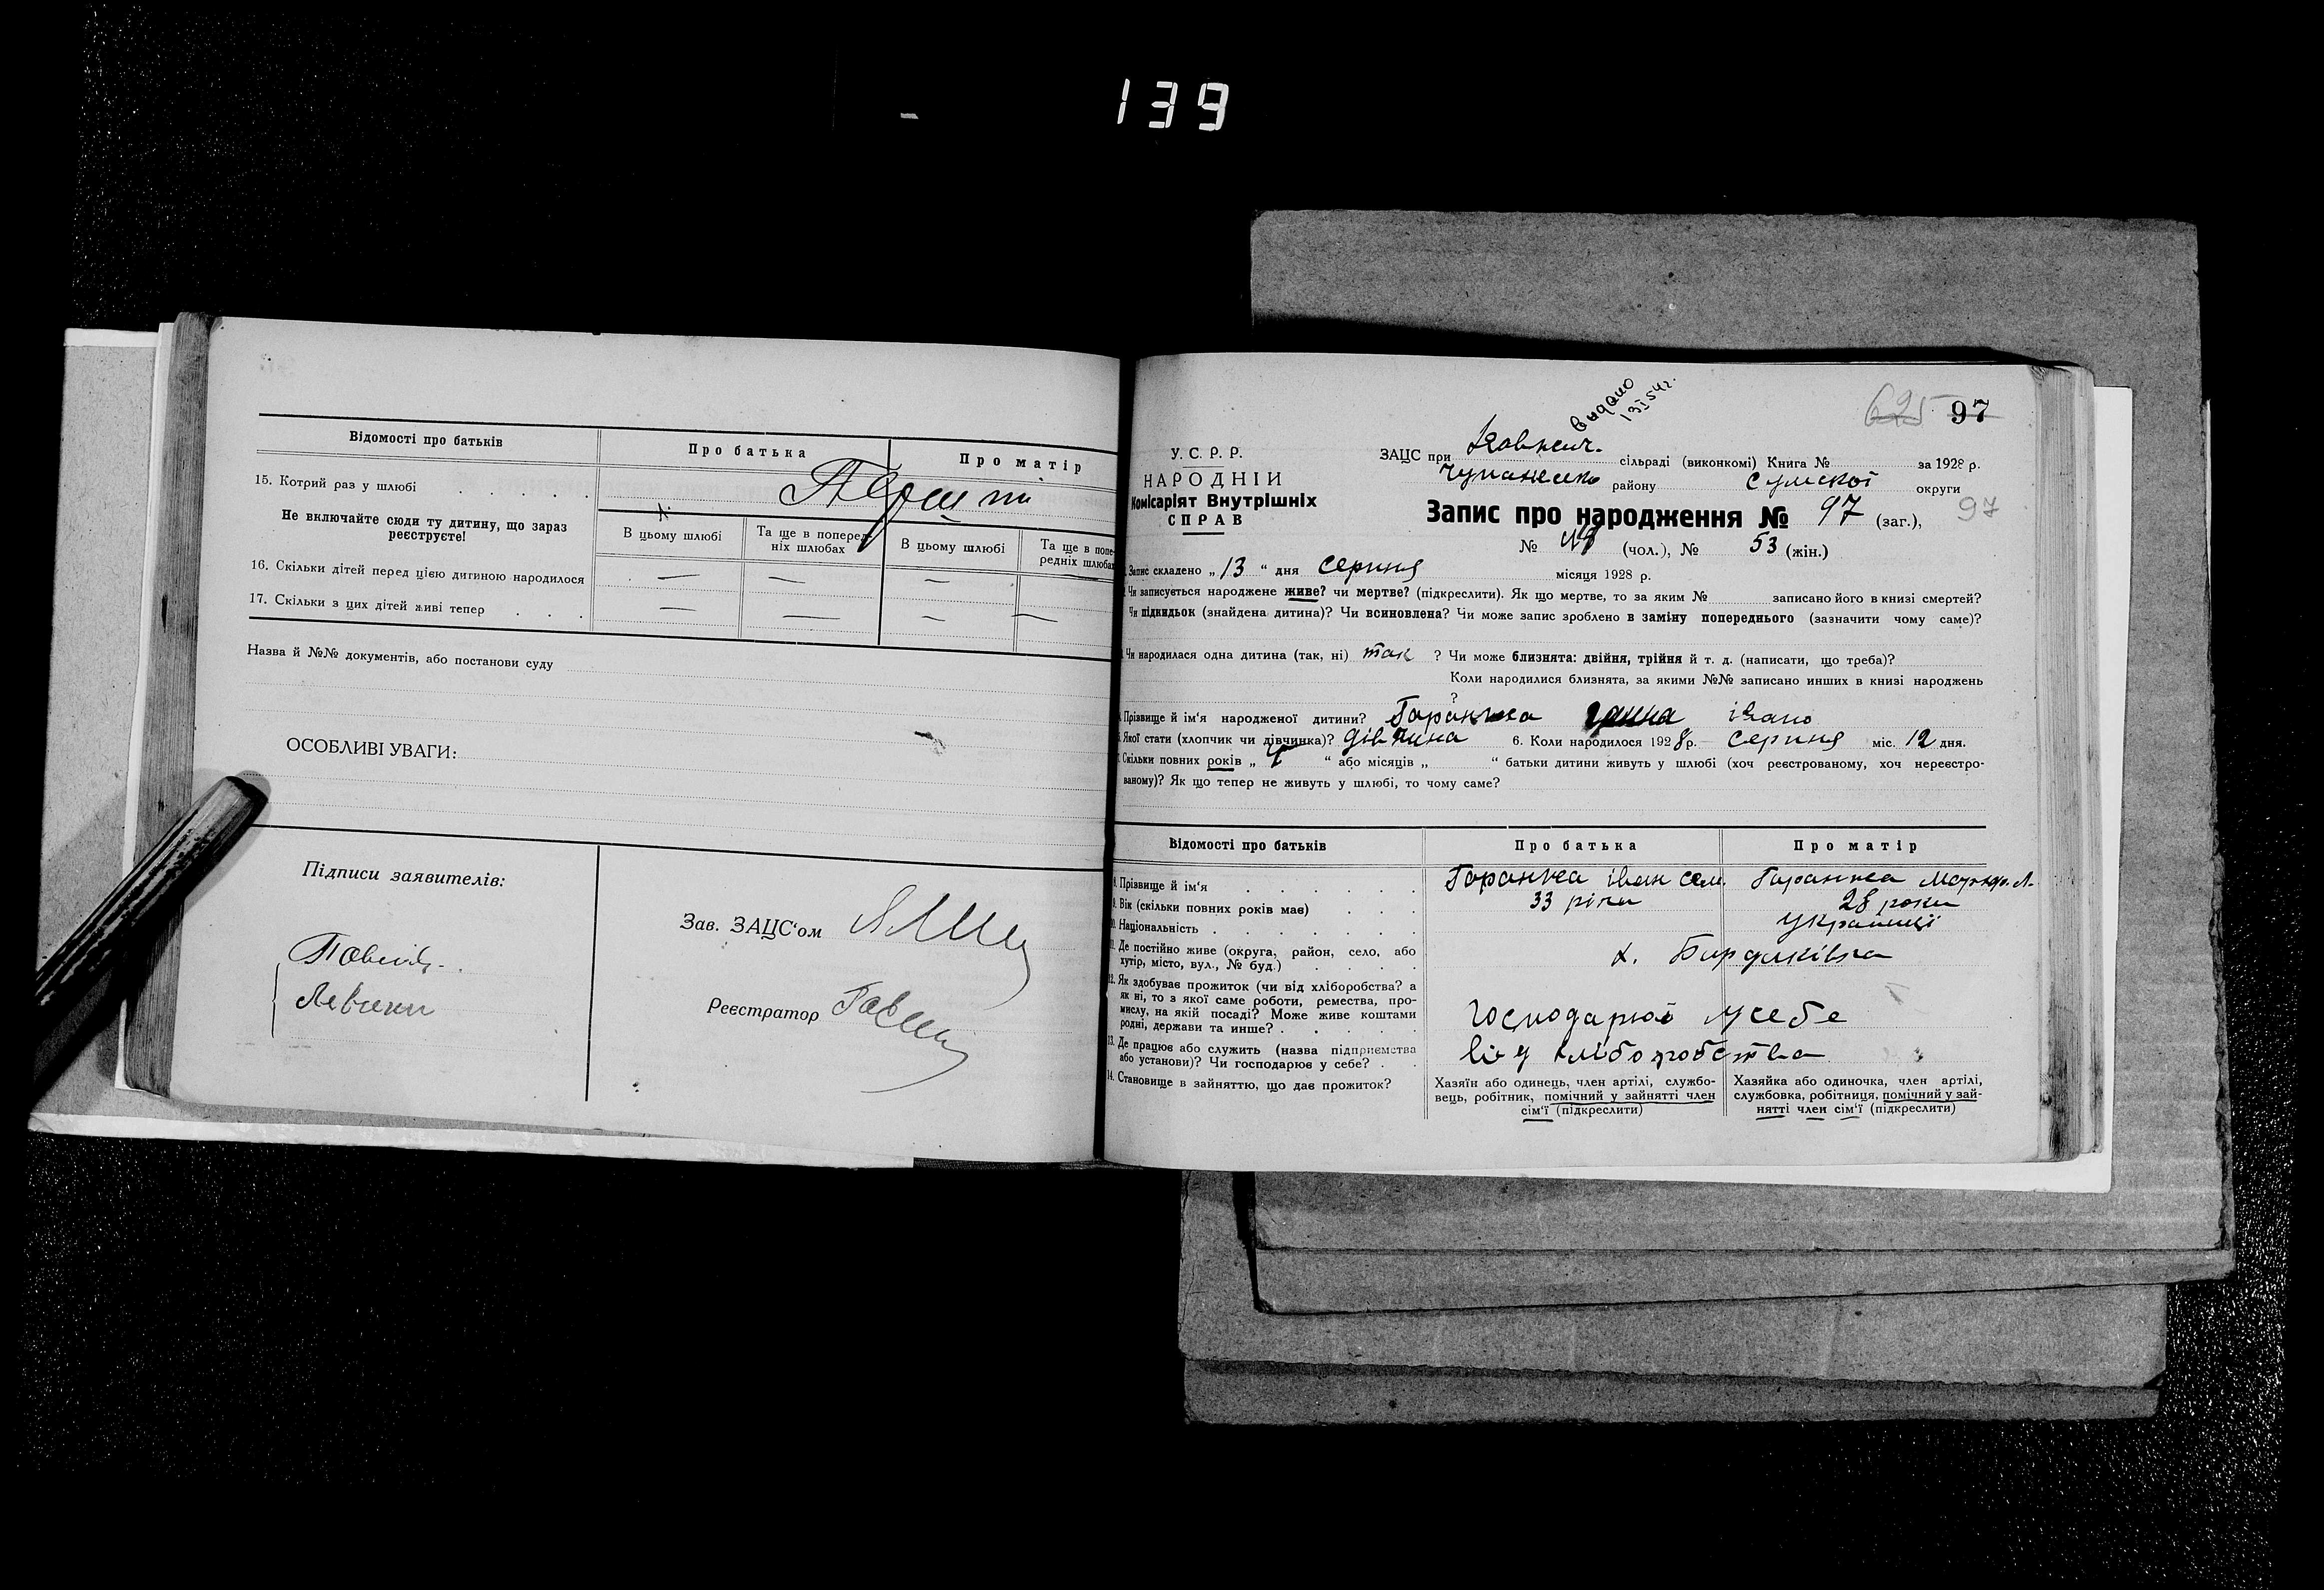 139
Відомості про батьків
Про батька
Про матір
15. Котрий раз у шлюбі
Не включайте сюди ту дитину, що зараз
реєструєте!
В цьому шлюбі
Та ще в поперед-
ніх шлюбах
В цьому шлюбі
Та ще в попе-
редніх шлюбах
16. Скільки дітей перед цією дитиною народилося — — — —
17. Скільки з цих дітей живі тепер — — — —
Назва й №№ документів, або постанови суду
ОСОБЛИВІ УВАГИ:
Підписи заявителів:
Зав. ЗАЦС'ом
Реєстратор
видано
625 97
У. С. Р. Р.
НАРОДНІЙ
Комісаріят Внутрішніх
СПРАВ
ЗАЦС при сільраді (виконкомі) Книга № за 1928 р.
району Сумської округи
Запис про народження № 97 (заг.), 97
№ (чол.), № 53 (жін.)
Запис складено „13“ дня серпня місяця 1928 р.
Чи записується народжене живе? чи мертве? (підкреслити). Як що мертве, то за яким № записано його в книзі смертей?
Чи підкидьок (знайдена дитина)? Чи всиновлена? Чи може запис зроблено в заміну попереднього (зазначити чому саме)?
Чи народилася одна дитина (так, ні) так ? Чи може близнята: двійня, трійня й т. д. (написати, що треба)?
Коли народилися близнята, за якими №№ записано инших в книзі народжень
?
Прізвище й ім'я народженої дитини? Гаранжа ганна івано
Якої стати (хлопчик чи дівчинка)? дівчина 6. Коли народилося 1928 р. серпня міс. 12 дня.
Скільки повних років „ “ або місяців „ “ батьки дитини живуть у шлюбі (хоч реєстрованому, хоч нереєстро-
ваному)? Як що тепер не живуть у шлюбі, то чому саме?
Відомості про батьків
Про батька
Про матір
8. Прізвище й ім'я Гаранжа іван сем. Гаранжа
9. Вік (скільки повних років має) 33 роки 28 роки
10. Національність українці
11. Де постійно живе (округа, район, село, або
хутір, місто, вул., № буд.)
12. Як здобуває прожиток (чи від хліборобства? а
як ні, то з якої саме роботи, ремества, про-
мислу, на якій посаді? Може живе коштами
родні, держави та инше?
господарює у себе
13. Де працює або служить (назва підприємства
або установи)? Чи господарює у себе?
від хліборобства
14. Становище в зайняттю, що дає прожиток?
Хазяїн або одинець, член артілі, службо-
вець, робітник, помічний у зайнятті член
сім'ї (підкреслити)
Хазяйка або одиночка, член артілі,
службовка, робітниця, помічний у зай-
нятті член сім'ї (підкреслити)